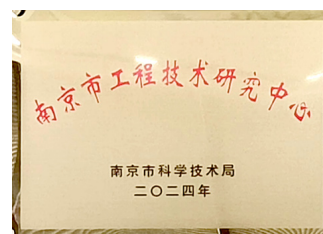 南京市工程技术研究中心
南京市科学技术局
二〇二四年